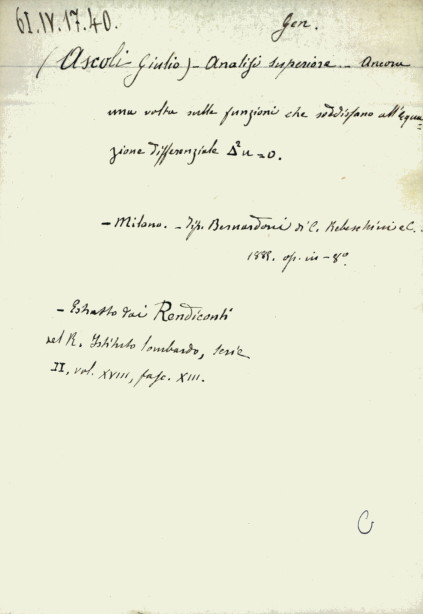 61.IV.17.40.
Gen.
(Ascoli Giulio) - Analisi superiore - Ancora
una volta sulle funzioni che soddisfano all'Equa-
zione differenziale Δ²u = 0.
- Milano. - Tip. Bernardoni di C. Rebeschini e C.
1885. op. in - 8°.
- Estratto dai Rendiconti
del R. Istituto lombardo, serie
II, vol. XVIII, fasc. XIII.
C